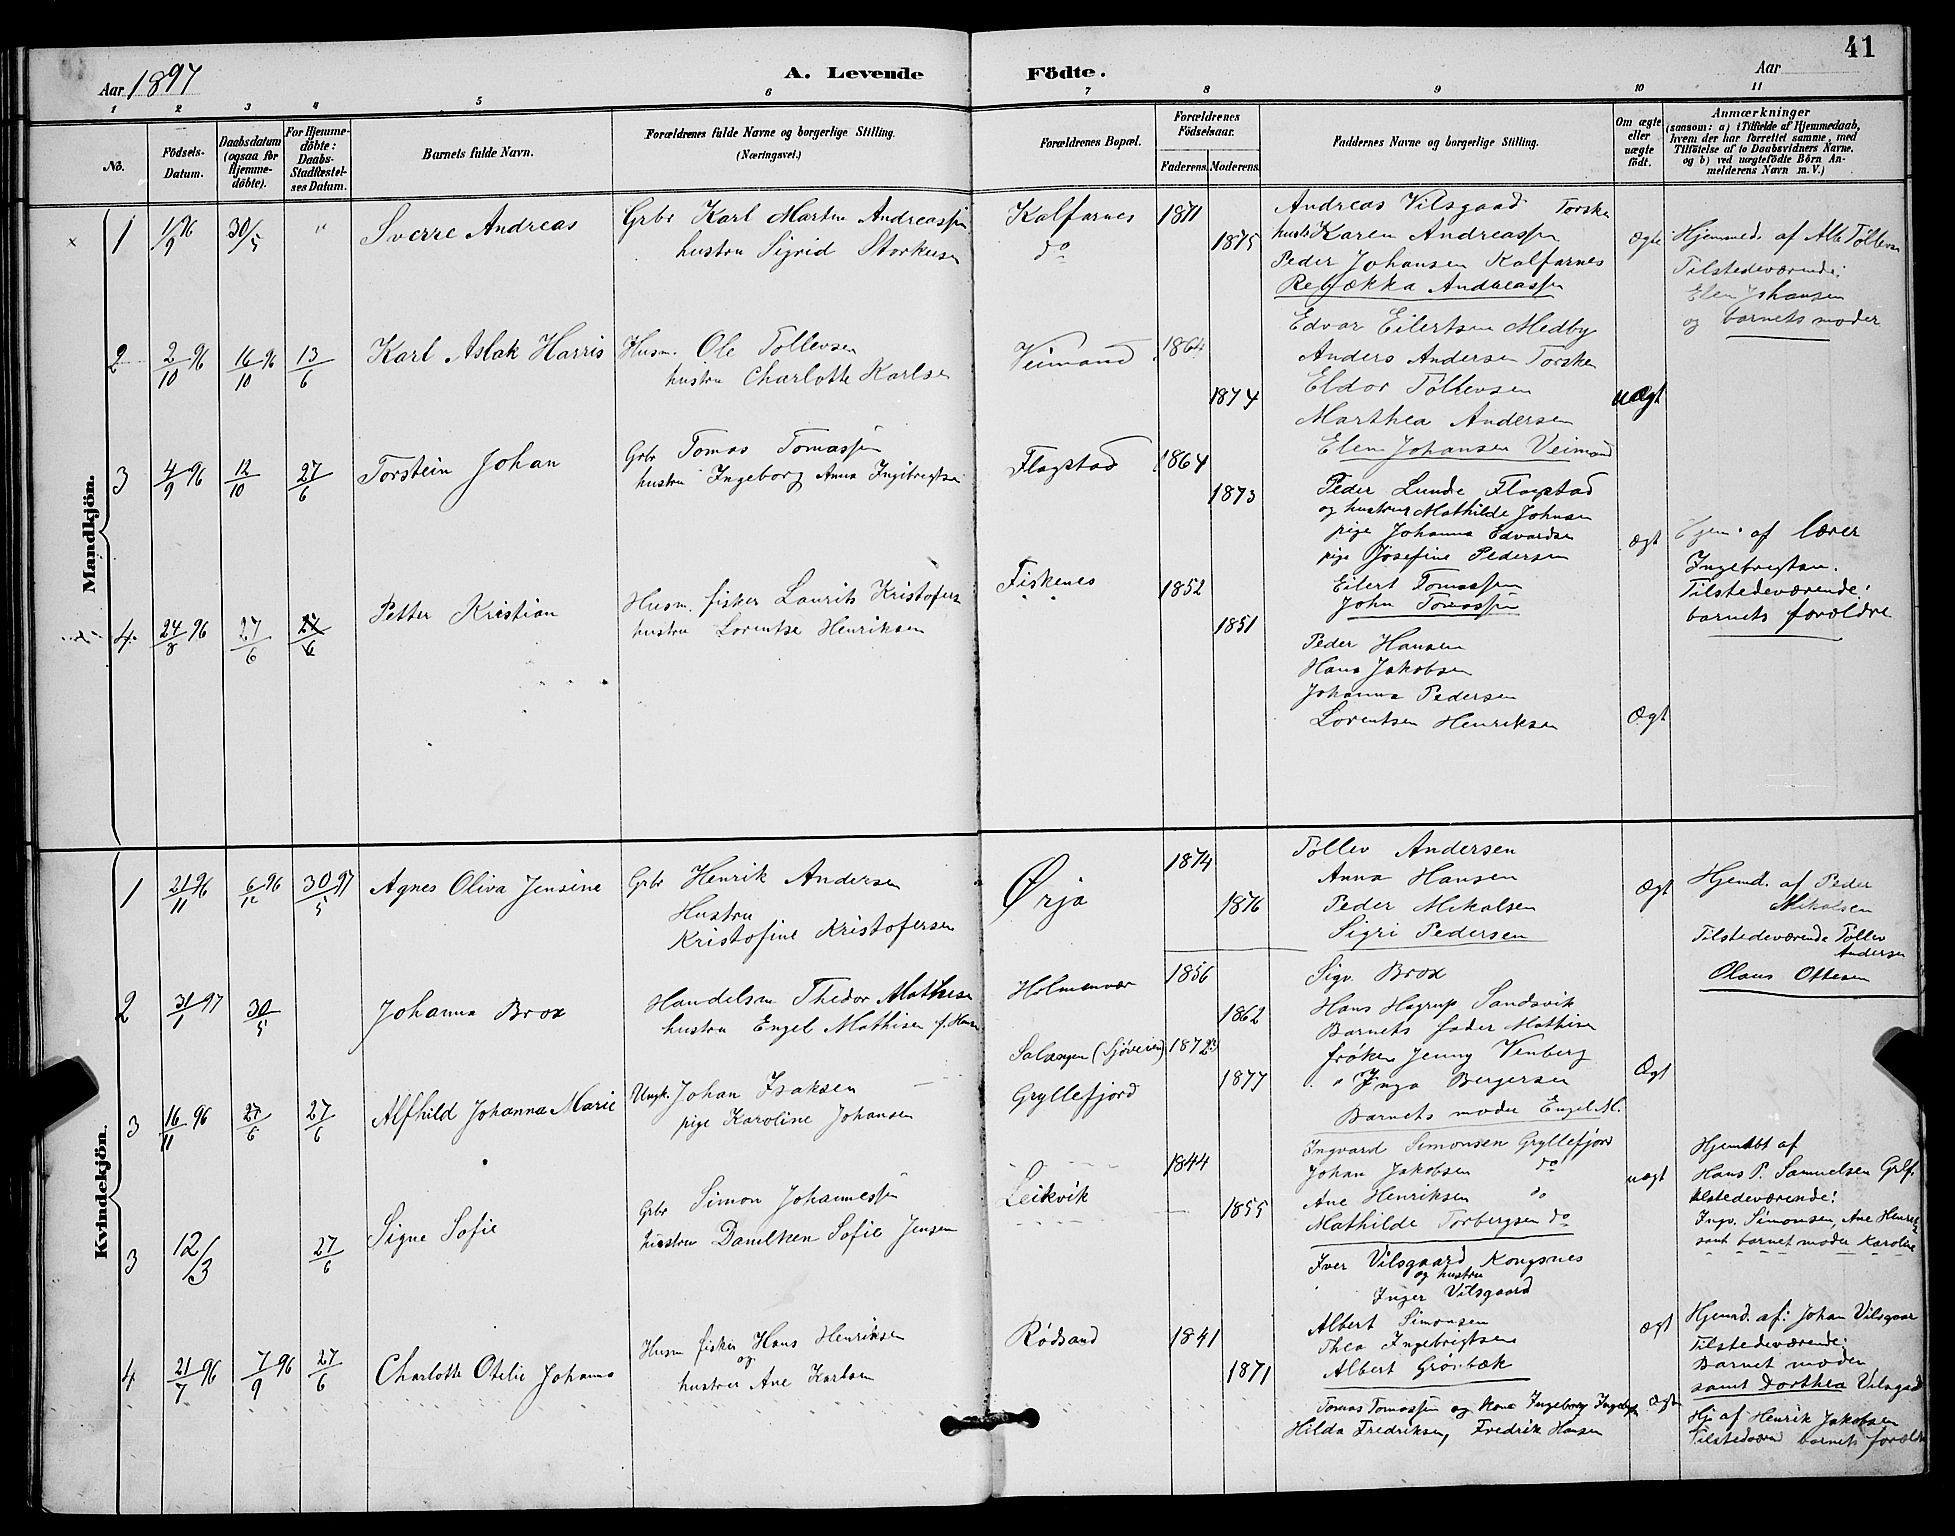 41
Aar 1897 A. Levende Födte. Aar
1 2 3 4 5 6 7 8 9 10 11
No. Födsels-Datum. Daabsdatum (ogsaa for Hjemme-döbte). For Hjemme-döbte: Daabs-Stadfæstel-ses Datum. Barnets fulde Navn. Forældrenes fulde Navne og borgerlige Stilling. (Næringsvei.) Forældrenes Bopæl. Forældrenes Födselsaar. Faderens. Moderens. Faddernes Navne og borgerlige Stilling. Om ægte eller uægte födt. Anmærkninger (saasom: a) i Tilfælde af Hjemmedaab, hvem der har forrettet samme, med Tilföielse af to Daabsvidners Navne. og b) ved uægtefödte Börn An-melderens Navn m. V.)
Mandkjön.
1 1/9 96 30/5 " Sverre Andreas
Grbr Karl Martin Andreassen
hustru Sigrid Storkersen
Kalfarnes
do
1871
1875
Andreas Vilsgaad Torsken
hustr Karen Andreassen
Peder Johansen Kalfarnes
Rebækka Andreassen
Ægte
Hjemmed. af Alb. Tollevsen
Tilstedeværende:
Elen Johansen
og barnets moder
2 2/10 96 16/10 96 13/6 Karl Aslak Harris
Husm. Ole Tollevsen
hustru Charlotte Karlsen
Veimand
1864
1874
Edvar Eilertsen Medby
Anders Andersen Torsken
Eldor Tollevsen
Marthea Andersen
Elen Johansen Veimand
uægt
3 4/9 96 12/10 27/6 Torstein Johan
Grbr Tomas Tomassen
hustru Ingeborg Anna Ingebrigtsen
Flagstad
1864
1873
Peder Lunde Flagstad
og hustru Mathilde Johnsen
pige Johanna Edvardsen
pige Josefine Pedersen
Eilert Tomassen
John Tomassen
Ægt
Hjem. af lærer
Ingebrigtsen.
Tilstedeværende:
barnets forældre
4. 24/8 96 27/6 27/6 Petter Kristian
Husm. fisker Laurits Kristofersen
hustru Lorentse Henriksen
Fiskenes
1852
1851
Peder Hansen
Hans Jakobsen
Johanna Pedersen
Lorentsen Henriksen
Ægt
Kvindekjön.
1 21/11 96 6/12 96 30/5 97 Agnes Oliva Jensine
Grbr Henrik Andersen
Hustru
Kristofine Kristofersen
Ørja
1874
1876
Tollev Andersen
Anna Hansen
Peder Mikalsen
Sigri Pedersen
Ægt
Hjemd. af Peder
Mikalsen
Tilstedeværende Tollev
Andersen
Olaus Ottesen
2 31/1 97 30/5 Johanna Brox
Handelsm Thedor Mathisen
hustru Engel Mathisen f. Hansen
Holmenvær
1856
1862
Sigv. Brox
Hans Hagrup Sandsvik
Barnets fader Mathisen
frøken Jenny Venberg
" Inga Bergersen
Barnets moder Engel M.
Ægt
3 16/11 96 27/6 27/6 Alfhild Johanna Marie
Ungk. Johan Isaksen
pige Karoline Johansen
Salangen (Sjøveien)
Gryllefjord
1877
Ingvard Simonsen Gryllefjord
Johan Jakobsen do
Ane Henriksen "
Mathilde Torbergsen do
uægt
Hjemdbt af
Hans P. Samuelsen Grlf.
tilstedeværende:
Ingv. Simonsen, Ane Henrik
samt barnet moder Karoline
3 12/3 27/6 Signe Sofie
Grbr Simon Johannessen
hustru Danilken Sofie Jensen
Leikvik
1844
1855
Iver Vilsgaard Kongsnes
og hustru
Inger Vilsgaard
Albert Simonsen
Thea Ingebrigtsen
Albert Grønbæk
Ægt
Hjemd. af: Johan Vilsgaar
Tilstedeværende:
Barnet moder
samt Dorthea Vilsgad
4 21/7 96 7/9 96 27/6 Charlotte Otelie Johanna
Husm fisker Hans Henriksen
og
hustru Ane Karlsen
Rødsand
1841
1871
Tomas Tomassen og kone Ingeborg Ingebr
Hilda Fredriksen, Fredrik Hansen
Ægt
Hj. af Henrik Jakobsen
Tilstedværend barnets foreldre